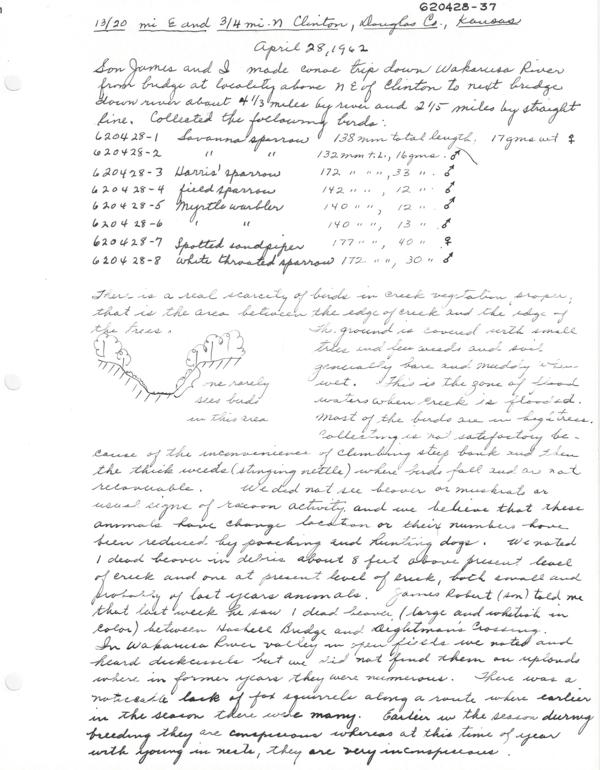 620428-37
13/20 mi E and 3/4 mi. N Clinton, Douglas Co., Kansas
April 28, 1962
Son James and I made canoe trip down Wakarusa River
from bridge at locality above N E of Clinton to next bridge
down river about 4 1/3 miles by river and 2 1/5 miles by straight
line. Collected the following birds:
620428-1 Savanna sparrow 138 mm total length, 17 gms wt ♀
620428-2 " " 132 mm t.l., 16 gms. ♂
620428-3 Harris' sparrow 172 " " ", 33 " . ♂
620428-4 field sparrow 142 " " , 12 " . ♂
620428-5 Myrtle warbler 140 " " , 12 " . ♂
620428-6 " " 140 " ", 13 " . ♂
620428-7 Spotted sandpiper 177 " ", 40 " ♀
620428-8 White throated sparrow 172 " ", 30 " ♂
There is a real scarcity of birds in creek vegetation proper;
that is the area between the edge of creek and the edge of
the trees. The ground is covered with small
trees and few weeds and soil
generally bare and muddy when
one rarely wet. This is the zone of flood
sees birds waters when creek is flooded.
in this area Most of the birds are in high trees.
Collecting is not satisfactory be-
cause of the inconvenience of climbing steep bank and then
the thick weeds (stinging nettle) where birds fall and are not
recoverable. We did not see beaver or muskrats or
usual signs of racoon activity and we believe that these
animals have change location or their numbers have
been reduced by poaching and hunting dogs. We noted
1 dead beaver in debris about 8 feet above present level
of creek and one at present level of creek, both small and
probably of last years animals. James Robert (son) told me
that last week he saw 1 dead beaver (large and whitish in
color) between Haskell Bridge and Dightman's Crossing.
In Wakarusa River valley in open fields we noted and
heard dickcissels but we did not find them on uplands
where in former years they were numerous. There was a
noticeable lack of fox squirrels along a route where earlier
in the season there were many. Earlier in the season during
breeding they are conspicuous whereas at this time of year
with young in nests, they are very inconspicuous.